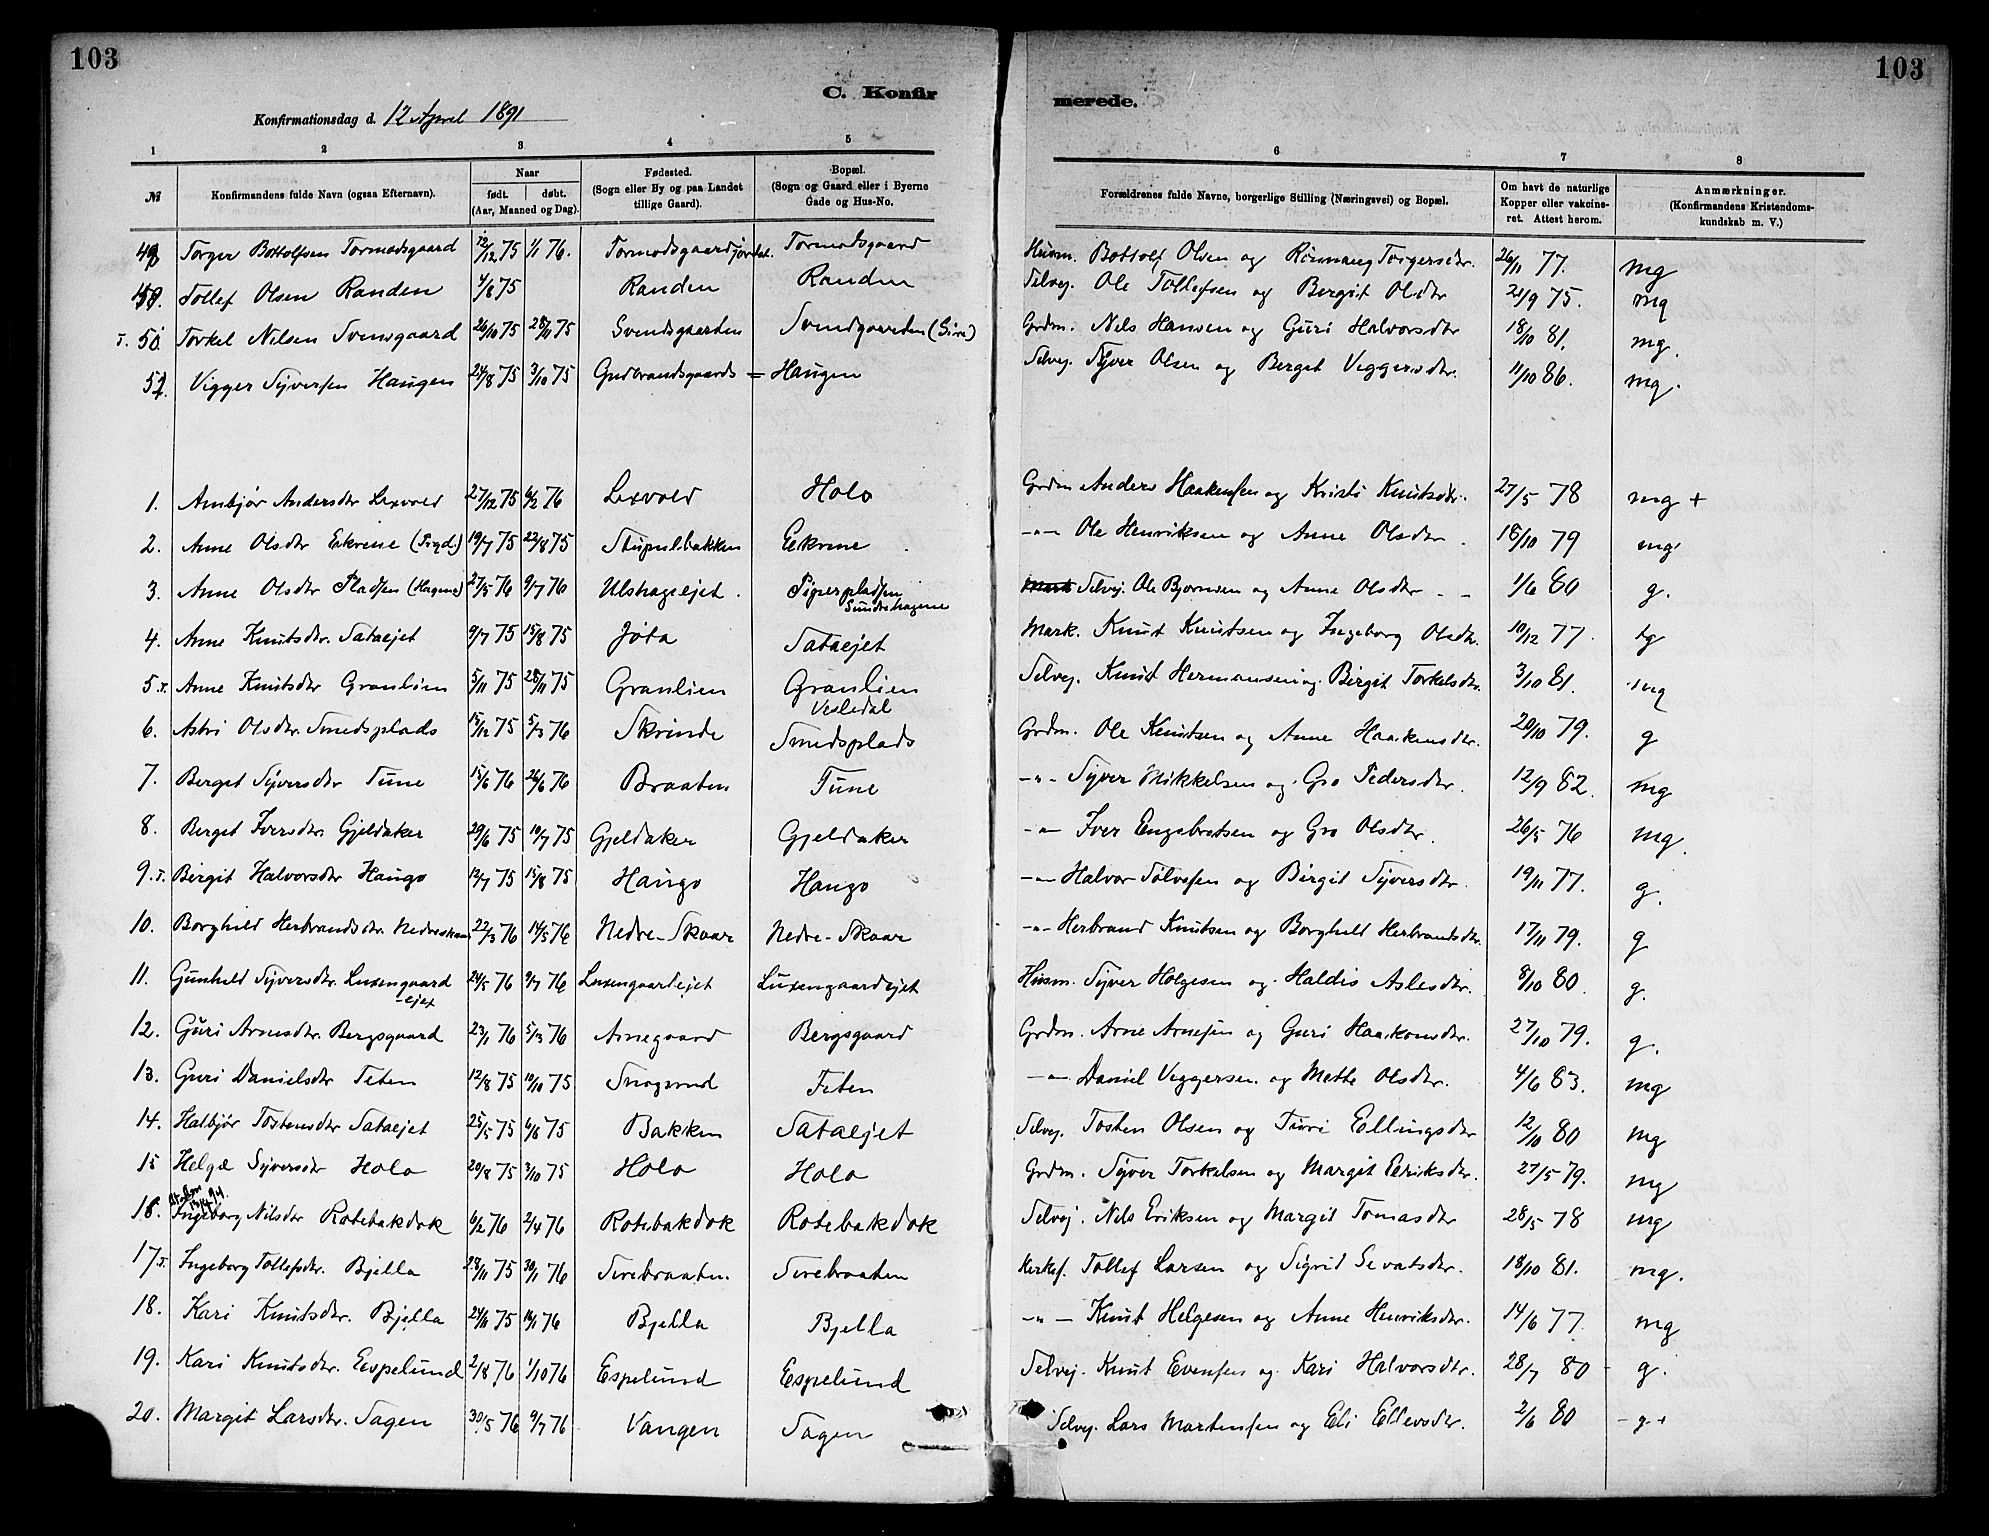 103
103
C. Konfir
merede.
Konfirmationsdag d. 12 April 1891
1 2 3 4 5 6 7 8
№ Konfirmandens fulde Navn (ogsaa Efternavn). Naar født. døbt. (Aar, Maaned og Dag). Fødested. (Sogn eller By og paa Landet tillige Gaard). Bopæl. (Sogn og Gaard eller i Byerne Gade og Hus-No. Forældrenes fulde Navne, borgerlige Stilling (Næringsvei) og Bopæl. Om havt de naturlige Kopper eller vaccineret. Attest herom. Anmærkninger. (Konfirmandens Kristendomskundskab m. V.)
Torger Bottolfsen Tormodsgaard 12/12 75 1/1 76. Tormodsgaardjordet. Tormodsgaard Husm. Bottolf Olsen og Rönnaug Torgersdtr. 26/11 77. mg
Tollef Olsen Randen 4/8 75 Randen Randen Selvej. Ole Tollefsen og Bergit Olsdtr 21/9 75. mg
T. 50. Torkel Nilsen Svensgaard 26/10 75 28/11 75 Svendsgaarden Svendgaarden (Sire) Grdm. Nels Hansen og Guri Halvorsdtr 18/10 81. mg.
Vigger Syversen Haugen 24/8 75 3/10 75 Gudbrandsgaards = Haugen Selvej. Syver Olsen og Berget Veggersdtr. 11/10 86. mg.
1. Ambjør Andersdtr Lexvold 27/12 75 6/2 76 Lexvold Holo Grdm Anders Haakensen og Kristi Knutsdtr. 27/5 78 mg +
2. Anne Olsdtr Ekrene 19/7 75 22/8 75 Stupulbakken Eekrene -"- Ole Henriksen og Anne Olsdtr. 18/10 79 mg
3. Anne Olsdtr Pladsen (Hagene) 27/5 76 9/7 76 Ulshagiejet. Pigerpladsen Sundrehagene Selvej. Ole Bjornsen og Anne Olsdtr - - 1/6 80 g.
4. Anne Knutsdtr. Sataejet 9/7 75 15/8 75 Jöta Sataejet Mark. Knut Knutsen og Ingeborg Olsdtr. 10/12 77. tg
5. T. Anne Knutsdtr Granlien 5/11 75 28/11 75 Granlien Granlien Vesledal Selvej. Knut Hermansen og Birgit Torkelsdtr. 3/10 81. mg
6. Astri Olsdtr. Smedsplads 15/12 75 5/3 76 Skrinde Smedsplads Grdm. Ole Knutsen og Anne Haakensdtr. 20/10 79. g
7. Berget Syversdtr Tune 15/6 76 26/6 76 Braaten Tune -"- Syver Mikkelsen og Gro Pedersdtr. 12/9 82. mg
8. Berget Iversdtr Gjeldaker 29/6 75 19/7 75 Gjeldaker Gjeldaker -"- Iver Engebretsen og Gro Olsdtr. 26/5 76 mg.
9. T. Birgit Halvorsdtr Haugo 12/7 75 15/8 75 Haugo Haugo -"- Halvor Tolvesen og Birgit Syversdtr. 19/11 77. g.
10. Borghild Herbrandsdtr. Nedreskaar 22/3 76 14/5 76 Nedre-Skaar Nedre-Skaar -"- Herbrand Knutsen og Borghild Herbrandsdtr. 17/11 79. g
11. Gunhild Syversdtr. Luxengaardejet 24/5 76 9/7 76 Luxengaardejet Luxengaardejet Husm. Syver Holgesen og Haldis Aslesdtr. 8/10 80. g.
12. Guri Arnesdtr. Bergsgaard 23/1 76 5/3 76 Arnegaard Bergsgaard Grdm. Arne Arnesen og Guri Haakonsdtr. 27/10 79. g.
13. Guri Danielsdtr Teten 12/8 75 10/10 75 Teten -"- Daniel Veggersen og Mette Olsdtr. 4/6 83. mg
14. Halbjör Tostensdtr Sataejet 25/5 75 6/8 75 Bakken Sataejet Selvej. Tosten Olsen og Turi Ellingsdtr 12/10 80 mg
15 Helge Syversdtr Holo 20/8 75 3/10 75 Holo Holo Grdm. Syver Torkelsen og Margit Eriksdtr. 27/5 79. mg
16. Ingeborg Nilsdtr Rotebakdok 6/2 76 2/4 76 Rotebakdok Rotebakdok Selvej. Nels Eriksen og Margit Tomasdtr 28/5 78 mg
17 T. Ingeborg Tollefsdtr. Bjella 28/11 75 30/1 76 Sirebraaten. Sirebraaten Kirkef. Tollef Larsen og Sigrid Sevatsdtr. 18/10 81. mg.
18. Kari Knutsdtr. Bjella 24/11 75 16/1 76 Bjella Bjella -"- Knut Helgesen og Anne Henriksdtr. 14/6 77. mg
19. Kari Knutsdtr. Eespelund 2/8 76 1/10 76 Espelund Espelund Selvej. Knut Evensen og Kari Halvorsdtr. 28/7 80 g.
20. Margit Larsdtr. Sagen 30/5 76 9/7 76 Vangen Sagen Selvej. Lars Martensen og Eli Ellevsdtr. 2/6 80 - g +